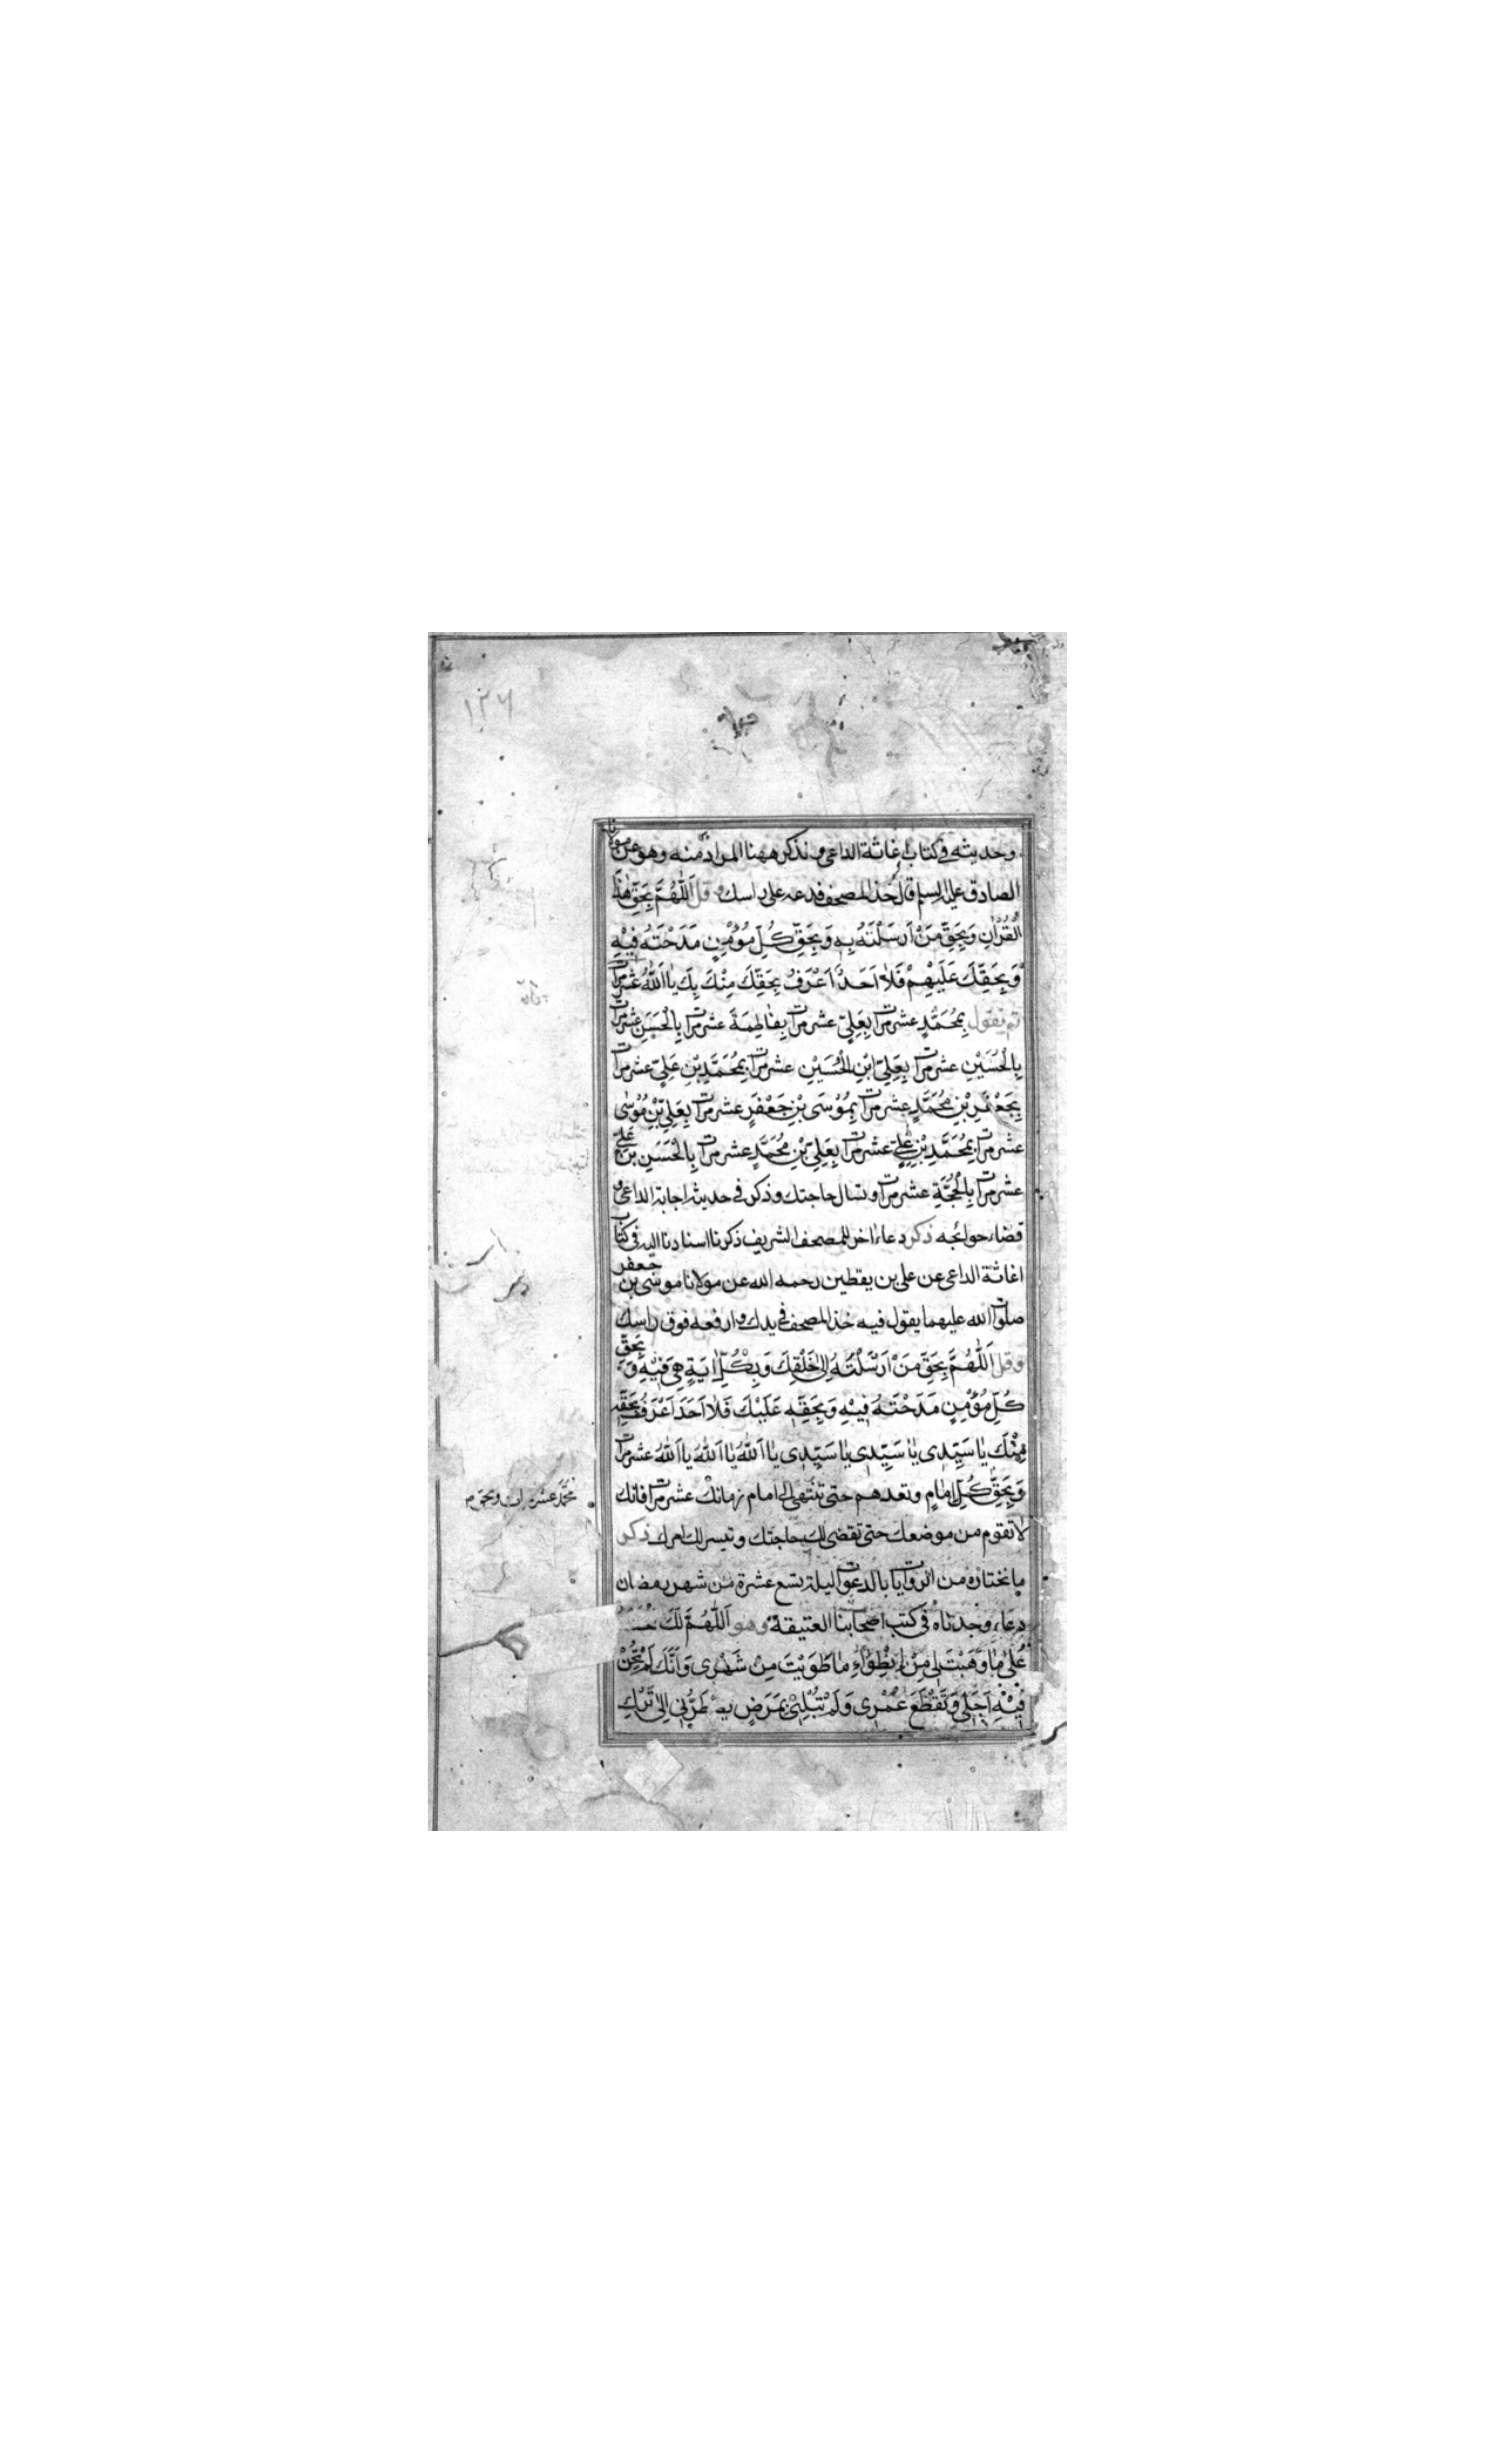 ١٢٦
وحديثه في كتاب إغاثة الداعي ونذكر ههنا المراد منه وهو عن مولانا
الصادق عليه السلم قال خذ المصحف فدعه على راسك وقل اَللّٰهُمَّ بِحَقِّ هٰذَا
الْقُرْاٰنِ وَبِحَقِّ مَنْ اَرْسَلْتَهُ بِهِ وَبِحَقِّ كُلِّ مُؤْمِنٍ مَدَحْتَهُ فِيْهِ
وَبِحَقِّكَ عَلَيْهِمْ فَلاٰ اَحَدَ اَعْرَفُ بِحَقِّكَ مِنْكَ بِكَ يٰا اَللّٰهُ عشر مرات
ثم يقول بِمُحَمَّدٍ عشر مرات بِعَلِيٍّ عشر مرات بِفٰاطِمَةَ عشر مرات بِالْحَسَنِ عشر مرات
بِالْحُسَيْنِ عشر مرات بِعَلِيِّ ابْنِ الْحُسَيْنِ عشر مرات بِمُحَمَّدِ بْنِ عَلِيٍّ عشر مرات
بِجَعْفَرِ بْنِ مُحَمَّدٍ عشر مرات بِمُوْسَى بْنِ جَعْفَرٍ عشر مرات بِعَلِيِّ بْنِ مُوْسٰى
عشر مرات بِمُحَمَّدِ بْنِ عَلِيٍّ عشر مرات بِعَلِيِّ بْنِ مُحَمَّدٍ عشر مرات بِالْحَسَنِ بْنِ عَلِيٍّ
عشر مرات بِالْحُجَّةِ عشر مرات وتسال حاجتك وذكر في حديثه اجابة الداعي و
قضاء حوائجه ذكر دعاء اخر للمصحف الشريف ذكرنا اسنادنا اليه في كتاب
اغاثة الداعي عن علي بن يقطين رحمه الله عن مولانا موسى بن جعفر
صلوات الله عليهما يقول فيه خذ المصحف في يدك وارفعه فوق راسك
وقل اَللّٰهُمَّ بِحَقِّ مَنْ اَرْسَلْتَهُ اِلٰى خَلْقِكَ وَبِكُلِّ اٰيَةٍ هِيَ فِيْهِ وَبِحَقِّ
كُلِّ مُؤْمِنٍ مَدَحْتَهُ فِيْهِ وَبِحَقِّهِ عَلَيْكَ فَلاٰ اَحَدَ اَعْرَفُ بِحَقِّهِ
مِنْكَ يٰا سَيِّدِى يٰا سَيِّدِى يٰا سَيِّدِى يٰا اَللّٰهُ يٰا اَللّٰهُ يٰا اَللّٰهُ عشر مرات
وَبِحَقِّ كُلِّ اِمٰامٍ وتعدهم حتى تنتهى الى امام زمانك عشر مرات فانك
محمد عشر مرات وبحق
لا تقوم من موضعك حتى تقضى لك حاجتك وتيسر لك امرك ذكر
ما نختاره من الروايات بالدعوات ليلة تسع عشرة من شهر رمضان
دعاء وجدناه في كتب اصحابنا العتيقة وهو اَللّٰهُمَّ لَكَ
عَلٰى مٰا وَهَبْتَ لِى مِنْ اِنْطِوٰاءِ مٰا طَوَيْتَ مِنْ شَهْرِى وَاَنَّكَ لَمْ تُجِنْ
فِيْهِ اَجَلِى وَتَقْطَعْ عُمْرِى وَلَمْ تُبْلِنِىْ بِمَرَضٍ يضْطَرُّنِى اِلٰى تَرْكِ